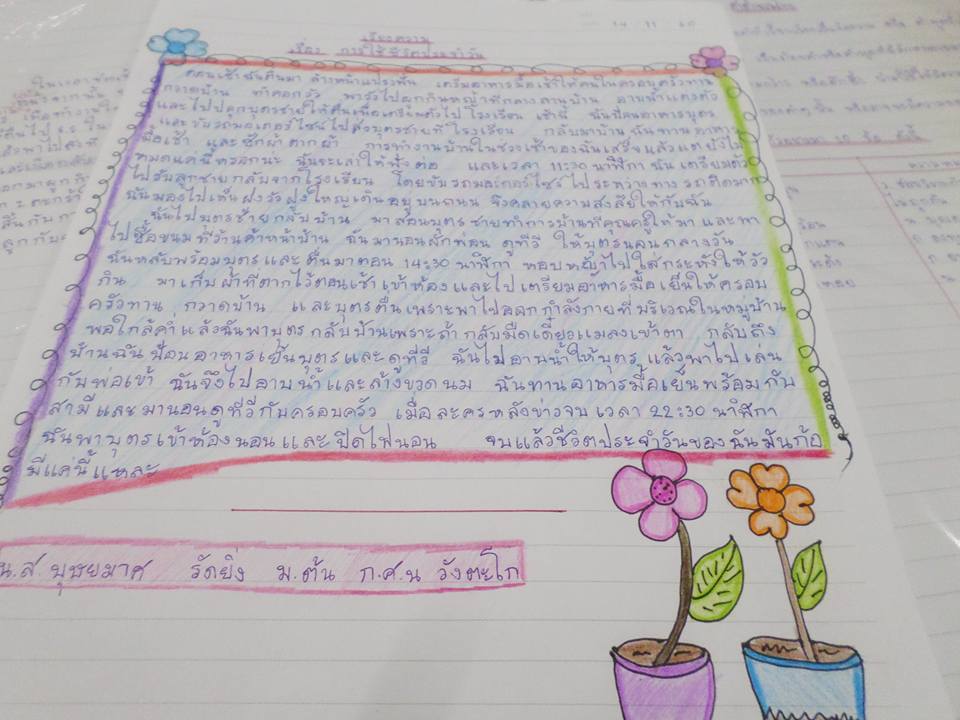 14 11 60
เรียงความ
เรื่อง การใช้ชีวิตประจำวัน
ตอนเช้าฉันตื่นมา ล้างหน้าแปรงฟัน เตรียมอาหารมื้อเช้าให้คนในครอบครัวทาน
กวาดบ้าน ทำคอกวัว พาวัวไปผูกกินหญ้าที่กลางลานบ้าน อาบน้ำแต่งตัว
และไปปลุกบุตรชายให้ตื่นเพื่อเตรียมตัวไปโรงเรียน เช้านี้ ฉันป้อนอาหารบุตร
และขับรถมอเตอร์ไซน์ไปส่งบุตรชายที่โรงเรียน กลับมาบ้านฉันทานอาหาร
มื้อเช้า และซักผ้าตากผ้า การทำงานบ้านในช่วงเช้าของฉันเสร็จแล้วแต่ยังไม่
หมดแค่นี้หรอกนะ ฉันจะเล่าให้ฟังต่อ และเวลา 11:30 นาฬิกา ฉันเตรียมตัว
ไปรับลูกชายกลับจากโรงเรียน โดยขับรถมอเตอร์ไซร์ไประหว่างทางรถติดมาก
ฉันมองไปเห็นฝูงวัวฝูงใหญ่เดินอยู่บนถนน จึงคลายความสงสัยให้กับฉัน
ฉันไปบุตรชายกลับบ้าน มาสอนบุตรชายทำการบ้านที่คุณครูให้มาและพา
ไปซื้อขนมที่ร้านค้าหน้าบ้าน ฉันมานอนพักผ่อน ดูทีวี ให้บุตรนอนกลางวัน
ฉันหลับพร้อมบุตรและตื่นมาตอน 14:30 นาฬิกา หอบหญ้าไปใส่กระหังให้วัว
กิน มาเก็บผ้าที่ตากไว้ตอนเช้าเข้าห้องและไปเตรียมอาหารมื้อเย็นให้ครอบ
ครัวทาน กวาดบ้าน และบุตรตื่นเพราะพาไปออกกำลังกายที่บริเวณในหมู่บ้าน
พอใกล้ค่ำแล้วฉันพาบุตรกลับบ้านเพราะถ้ากลับมืดเดี๋ยวแมลงเข้าตา กลับถึง
บ้านฉันป้อนอาหารเย็นบุตรและดูทีวี ฉันไปอาบน้ำให้บุตร แล้วพาไปเล่น
กับพ่อเข้า ฉันจึงไปอาบน้ำและล้างขวดนม ฉันทานอาหารมื้อเย็นพร้อมกับ
สามีและมานอนดูทีวีกับครอบครัว เมื่อละครหลังข่าวจบเวลา 22:30 นาฬิกา
ฉันพาบุตรเข้าห้องนอนและปิดไฟนอน จบแล้วชีวิตประจำวันของฉันมันก้อ
มีแค่นี้แหละ
น.ส บุษยมาศ รัดยิ่ง ม.ต้น ก.ศ.น วังตะโก